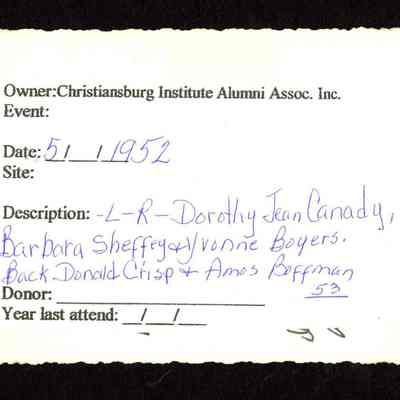 Owner:Christiansburg Institute Alumni Assoc. Inc.
Event:
Date: 5/ / /1952
Site:
Description: -L-R-Dorothy Jean Canady,
Barbara Sheffey & Yvonne Boyers.
Back Donald Crisp & Amos Boffman
Donor:
53
Year last attend: / /